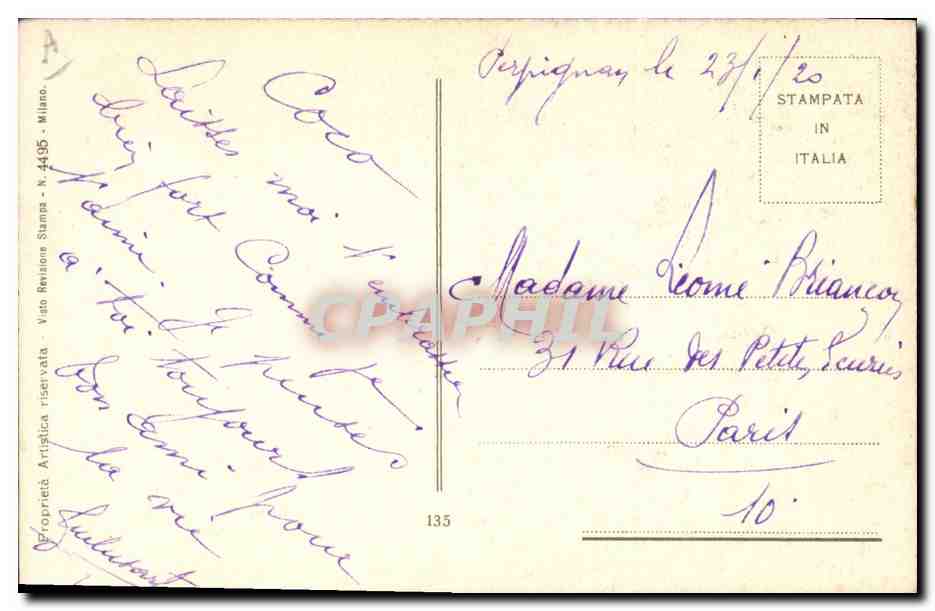 Perpignan le 23/1/20
STAMPATA
IN
ITALIA
Coco
Laisses moi t'embrasser
bien fort Comme je
t'aime. Je penses
a. toi toujours pour
la vie
Ton Ami
Madame Léonie Briancon
31 Rue des Petites Ecuries
Paris
10
135
Proprietà Artistica riservata - Visto Revisione Stampa - N. 4495 - Milano.
CPAPHIL